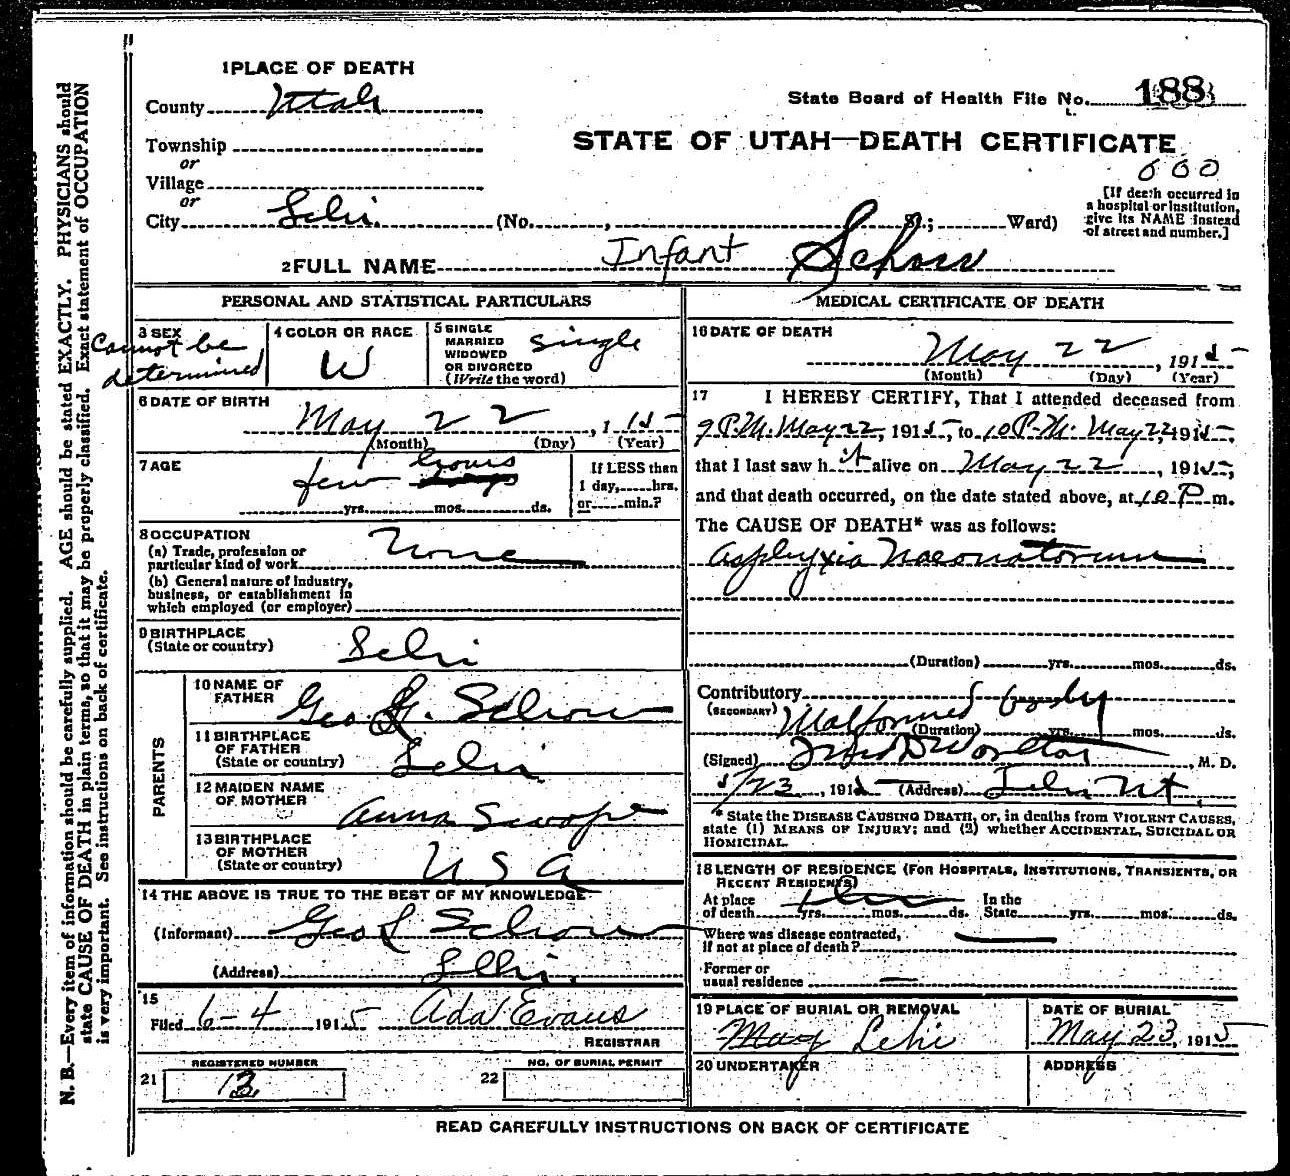 1 PLACE OF DEATH
County Utah
State Board of Health File No. 188
Township
STATE OF UTAH—DEATH CERTIFICATE
or
Village
or
City Lehi (No. , St.; Ward)
[If death occurred in a hospital or institution, give its NAME instead of street and number.]
2 FULL NAME Infant Schow
PERSONAL AND STATISTICAL PARTICULARS
3 SEX
Cannot be
determined
4 COLOR OR RACE
W
5 SINGLE
MARRIED
WIDOWED
OR DIVORCED
(Write the word)
single
6 DATE OF BIRTH
May 22, 1 15
(Month) (Day) (Year)
7 AGE
few hours
yrs. mos. ds.
If LESS than
1 day, hrs.
or min.?
8 OCCUPATION
(a) Trade, profession or
particular kind of work None
(b) General nature of industry,
business, or establishment in
which employed (or employer)
9 BIRTHPLACE
(State or country) Lehi
PARENTS
10 NAME OF
FATHER Geo Schow
11 BIRTHPLACE
OF FATHER
(State or country) Lehi
12 MAIDEN NAME
OF MOTHER Anna Swope
13 BIRTHPLACE
OF MOTHER
(State or country) U S A
14 THE ABOVE IS TRUE TO THE BEST OF MY KNOWLEDGE
(Informant) Geo Schow
(Address) Lehi.
15
Filed 6-4 1915 Ada Evans
REGISTRAR
21 REGISTERED NUMBER
13
22 NO. OF BURIAL PERMIT
MEDICAL CERTIFICATE OF DEATH
16 DATE OF DEATH
May 22, 1915
(Month) (Day) (Year)
17 I HEREBY CERTIFY, That I attended deceased from
9 P.M. May 22, 1915, to 10 P.M. May 22, 1915,
that I last saw h it alive on May 22, 1915,
and that death occurred, on the date stated above, at 10 P. m.
The CAUSE OF DEATH* was as follows:
Asphyxia Naeonatorum
(Duration) yrs. mos. ds.
Contributory
(SECONDARY) Malformed body
(Duration) yrs. mos. ds.
(Signed) Worlton, M. D.
5/23, 1915 (Address) Lehi Ut.
* State the DISEASE CAUSING DEATH, or, in deaths from VIOLENT CAUSES,
state (1) MEANS OF INJURY; and (2) whether ACCIDENTAL, SUICIDAL OR
HOMICIDAL.
18 LENGTH OF RESIDENCE (FOR HOSPITALS, INSTITUTIONS, TRANSIENTS, OR
RECENT RESIDENTS)
At place
of death yrs. mos. ds.
In the
State yrs. mos. ds.
Where was disease contracted,
if not at place of death?
Former or
usual residence
19 PLACE OF BURIAL OR REMOVAL
May Lehi
DATE OF BURIAL
May 23, 1915
20 UNDERTAKER
ADDRESS
READ CAREFULLY INSTRUCTIONS ON BACK OF CERTIFICATE
N. B.—Every item of information should be carefully supplied. AGE should be stated EXACTLY. PHYSICIANS should
state CAUSE OF DEATH in plain terms, so that it may be properly classified. Exact statement of OCCUPATION
is very important. See instructions on back of certificate.